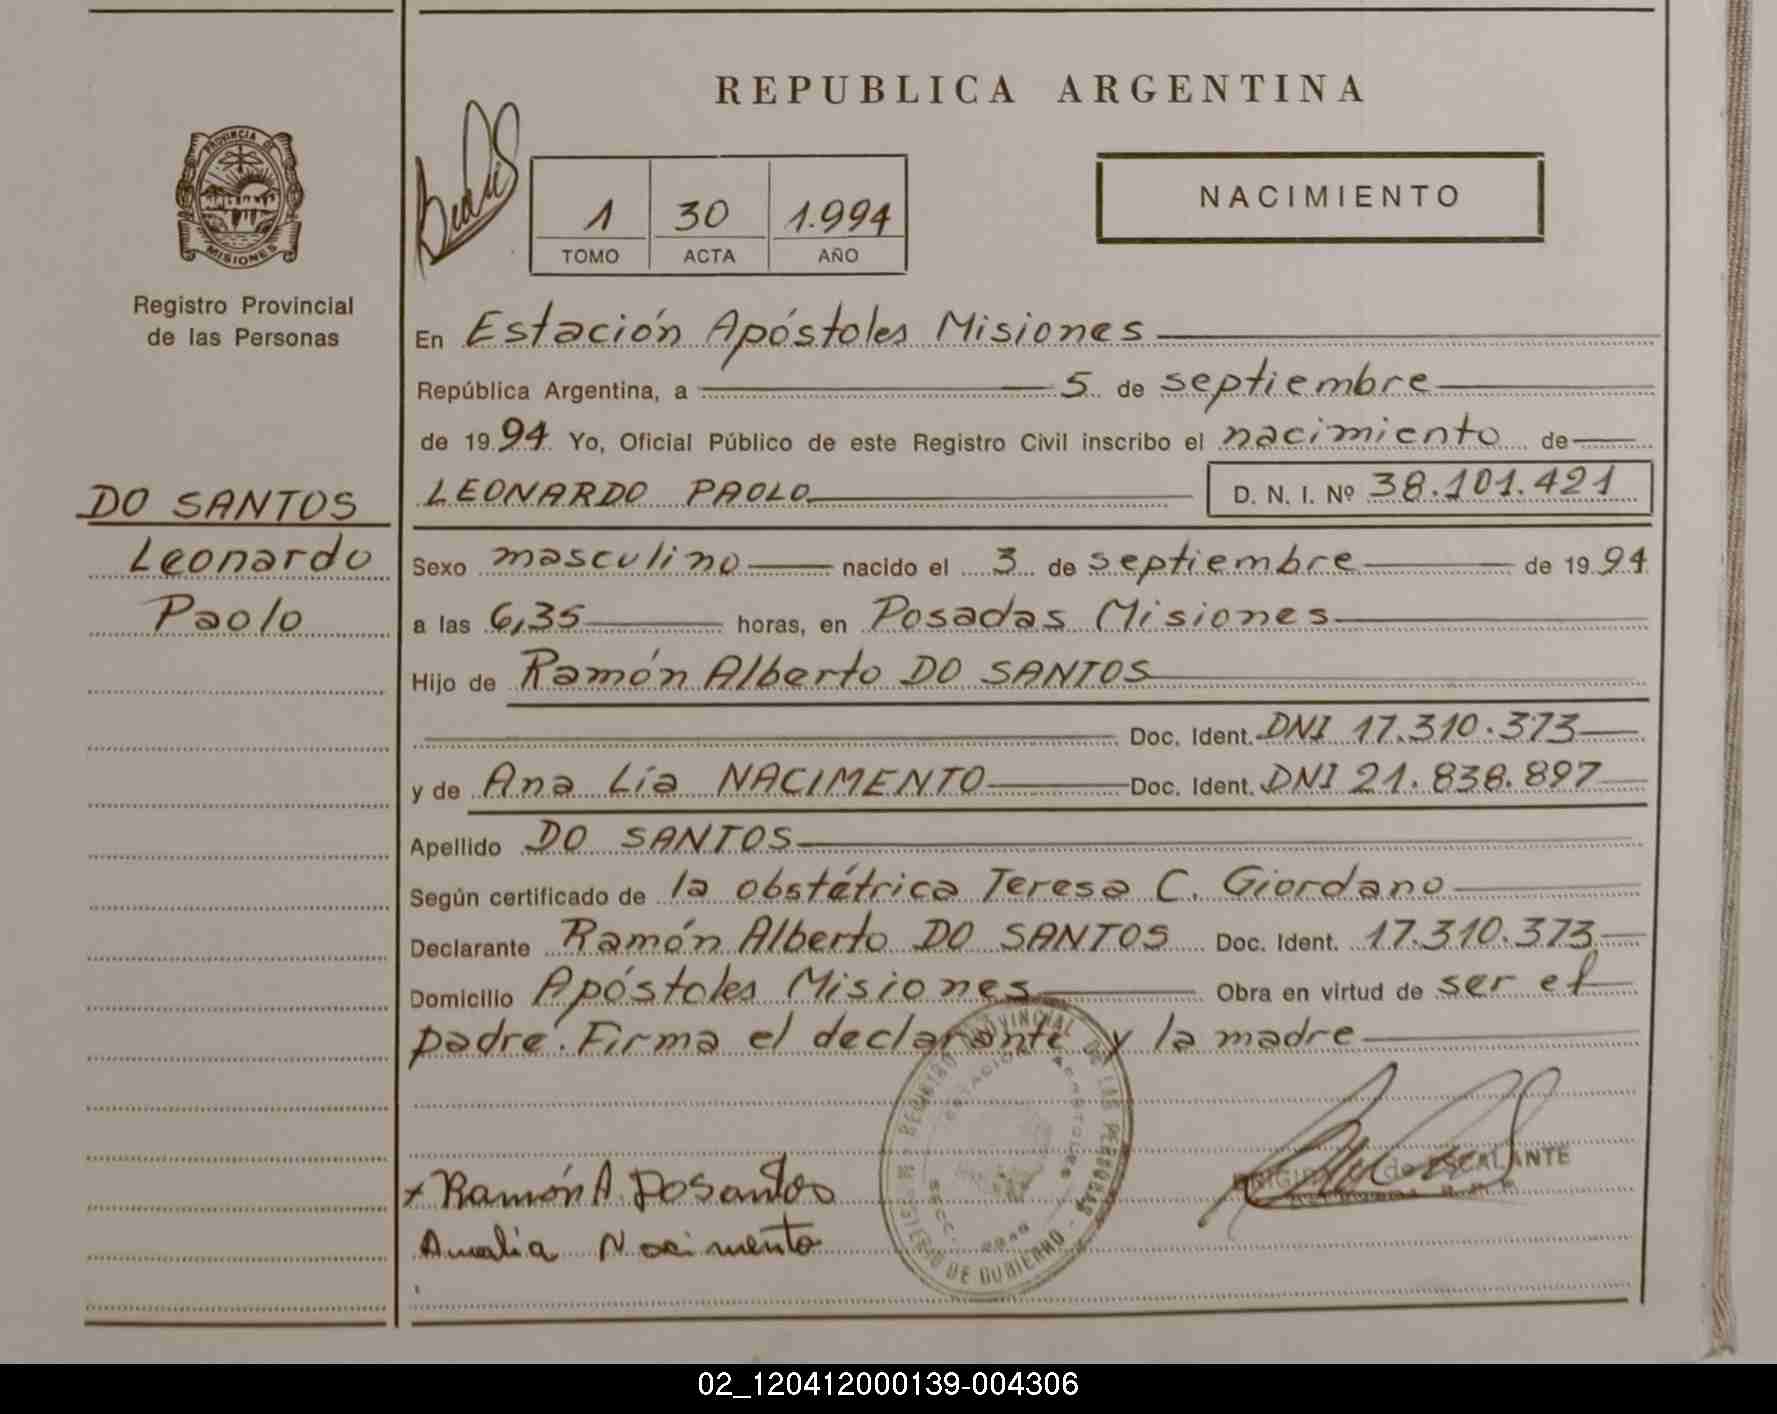 REPUBLICA ARGENTINA
PROVINCIA DE
MISIONES
Registro Provincial
de las Personas
1 30 1.994
TOMO ACTA AÑO
NACIMIENTO
En Estación Apóstoles Misiones
República Argentina, a 5 de septiembre
de 1994 Yo, Oficial Público de este Registro Civil inscribo el nacimiento de
LEONARDO PAOLO D. N. I. Nº 38.101.421
DO SANTOS
Leonardo
Paolo
Sexo masculino nacido el 3 de septiembre de 1994
a las 6,35 horas, en Posadas Misiones
Hijo de Ramón Alberto DO SANTOS
Doc. Ident. DNI 17.310.373
y de Ana Lía NACIMENTO Doc. Ident. DNI 21.838.897
Apellido DO SANTOS
Según certificado de la obstétrica Teresa C. Giordano
Declarante Ramón Alberto DO SANTOS Doc. Ident. 17.310.373
Domicilio Apóstoles Misiones Obra en virtud de ser el
padre. Firma el declarante y la madre
REGISTRO PROVINCIAL DE LAS PERSONAS
MINISTERIO DE GOBIERNO
ESTACION APOSTOLES
de ESCALANTE
Ramón A Dosantos
Analia Nacimento
02_120412000139-004306